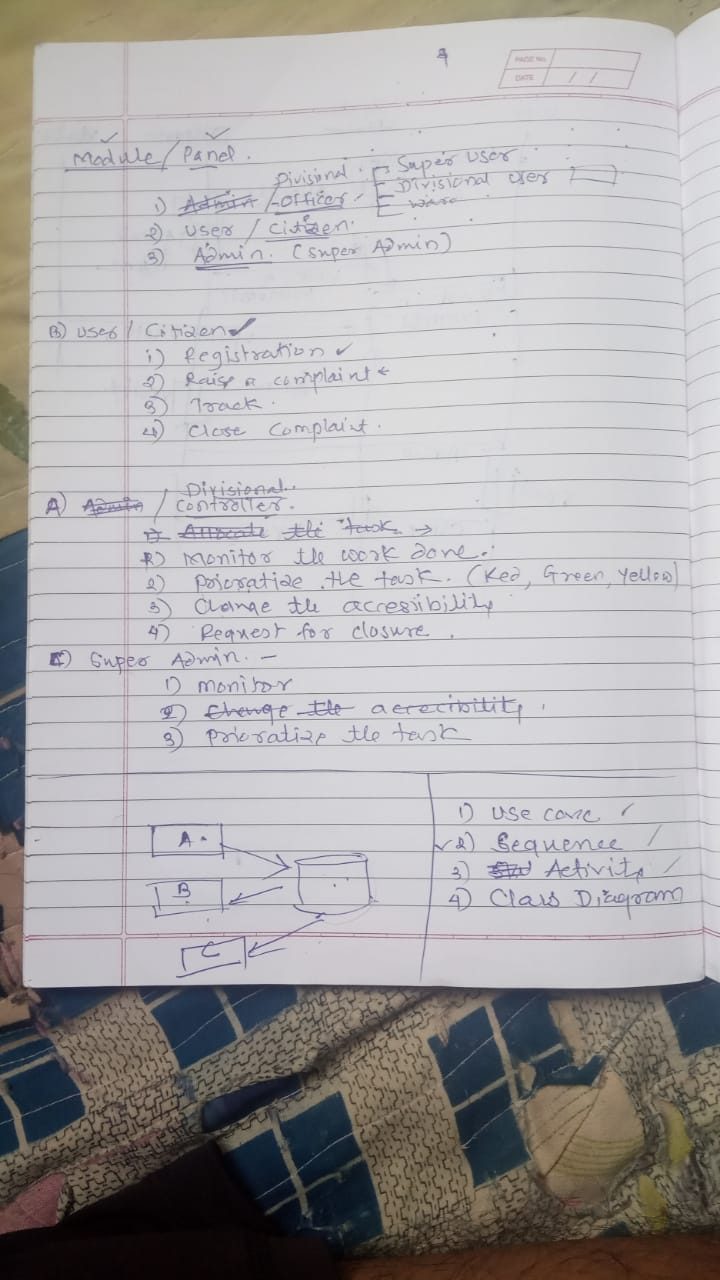 PAGE No.
DATE / /
Module / Panel.
1) Admin / Divisional officer - Super User
Divisional User
2) User / Citizen.
3) Admin. (Super Admin)
B) User / Citizen
1) Registration
2) Raise a complaint
3) Track.
4) Close Complaint.
A) Admin / Divisional Controller.
1) Allocate the task →
2) Monitor the work done.
2) Prioratize the task. (Red, Green, Yellow)
3) Change the accessibility
4) Request for closure.
Super Admin. -
1) monitor
2) Change the acrecibility.
3) Prioratize the task
A
B
C
1) Use case
2) Sequence
3) Activity
4) Class Diagram